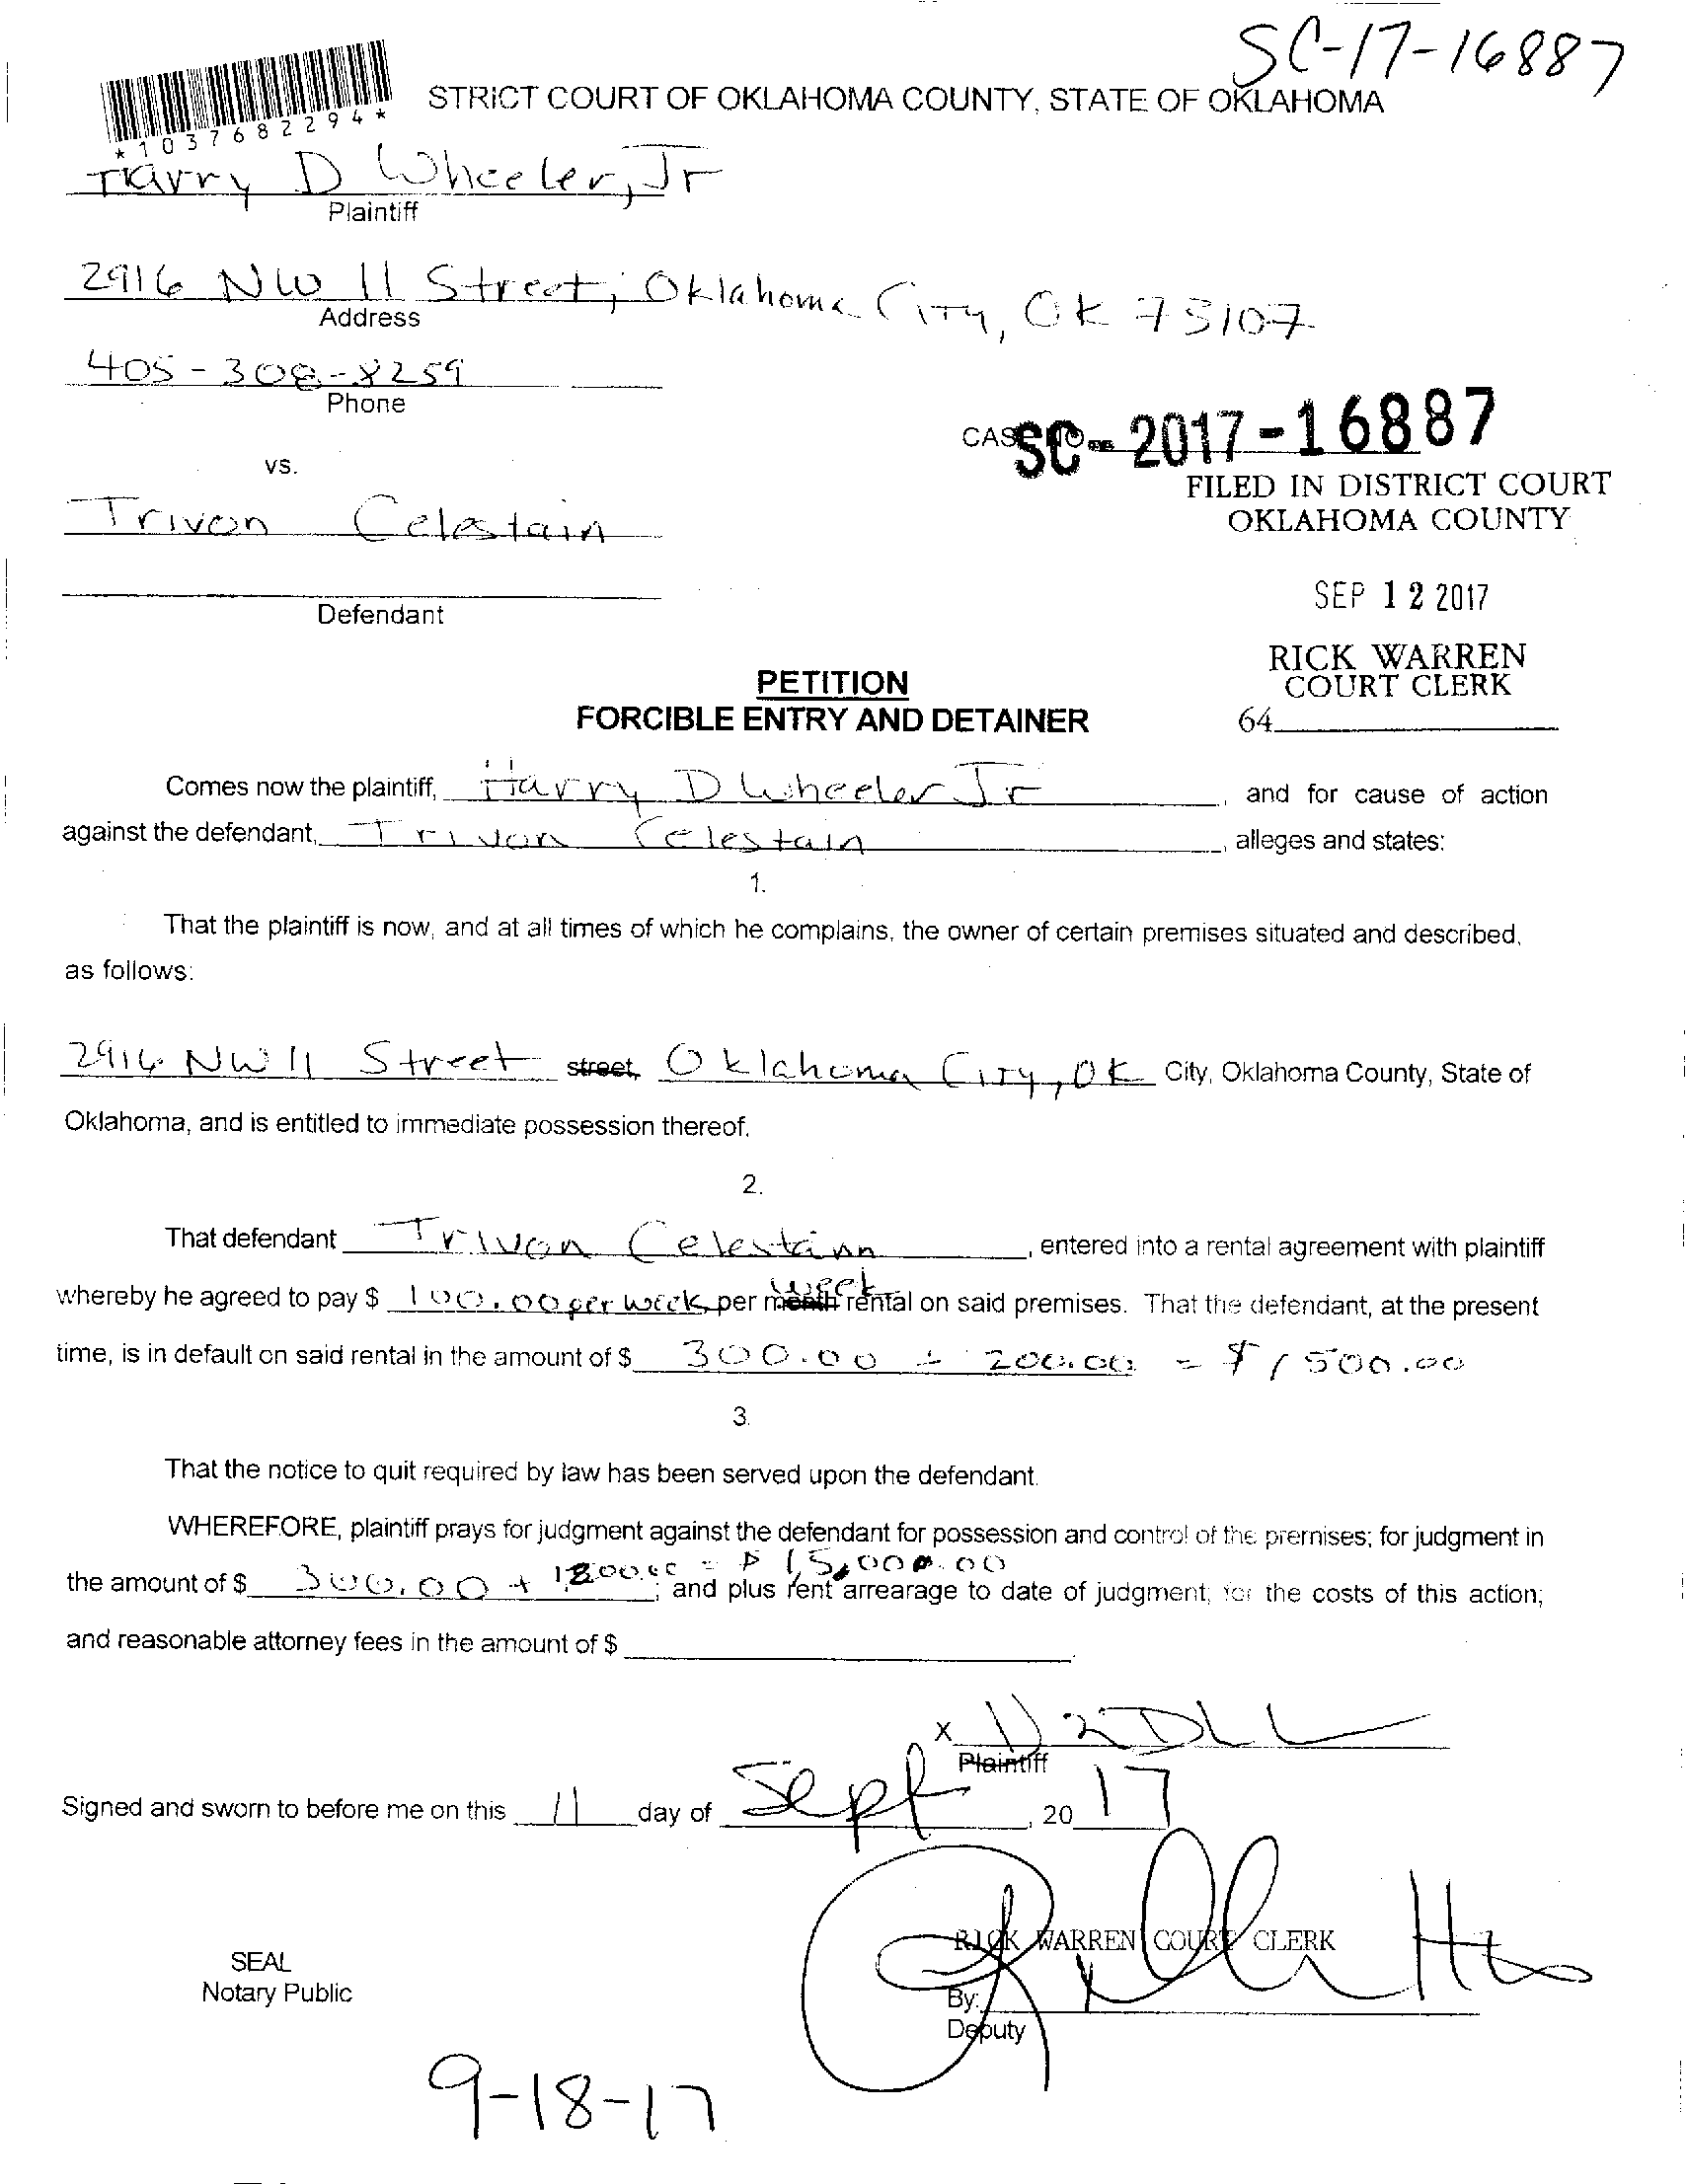 SC-17-16887
*1037682294*
STRICT COURT OF OKLAHOMA COUNTY, STATE OF OKLAHOMA
Harry D Wheeler, Jr
Plaintiff
2916 NW 11 Street, Oklahoma City, OK 73107
Address
405-308-8259
Phone
CASE NO.
SC-2017-16887
vs.
FILED IN DISTRICT COURT
OKLAHOMA COUNTY
Trivon Celestain
SEP 12 2017
Defendant
RICK WARREN
COURT CLERK
64
PETITION
FORCIBLE ENTRY AND DETAINER
Comes now the plaintiff, Harry D Wheeler Jr, and for cause of action
against the defendant, Trivon Celestain, alleges and states:
1.
That the plaintiff is now, and at all times of which he complains, the owner of certain premises situated and described,
as follows:
2916 NW 11 Street street, Oklahoma City, OK City, Oklahoma County, State of
Oklahoma, and is entitled to immediate possession thereof.
2.
That defendant Trivon Celestain, entered into a rental agreement with plaintiff
whereby he agreed to pay $ 100.00 per week per month week rental on said premises. That the defendant, at the present
time, is in default on said rental in the amount of $ 300.00 + 200.00 = $ 1500.00
3.
That the notice to quit required by law has been served upon the defendant.
WHEREFORE, plaintiff prays for judgment against the defendant for possession and control of the premises; for judgment in
the amount of $ 300.00 + = $ ; and plus rent arrearage to date of judgment; for the costs of this action;
and reasonable attorney fees in the amount of $
X
Plaintiff
Signed and sworn to before me on this 11 day of Sept, 2017
RICK WARREN COURT CLERK
SEAL
Notary Public
By:
Deputy
9-18-17